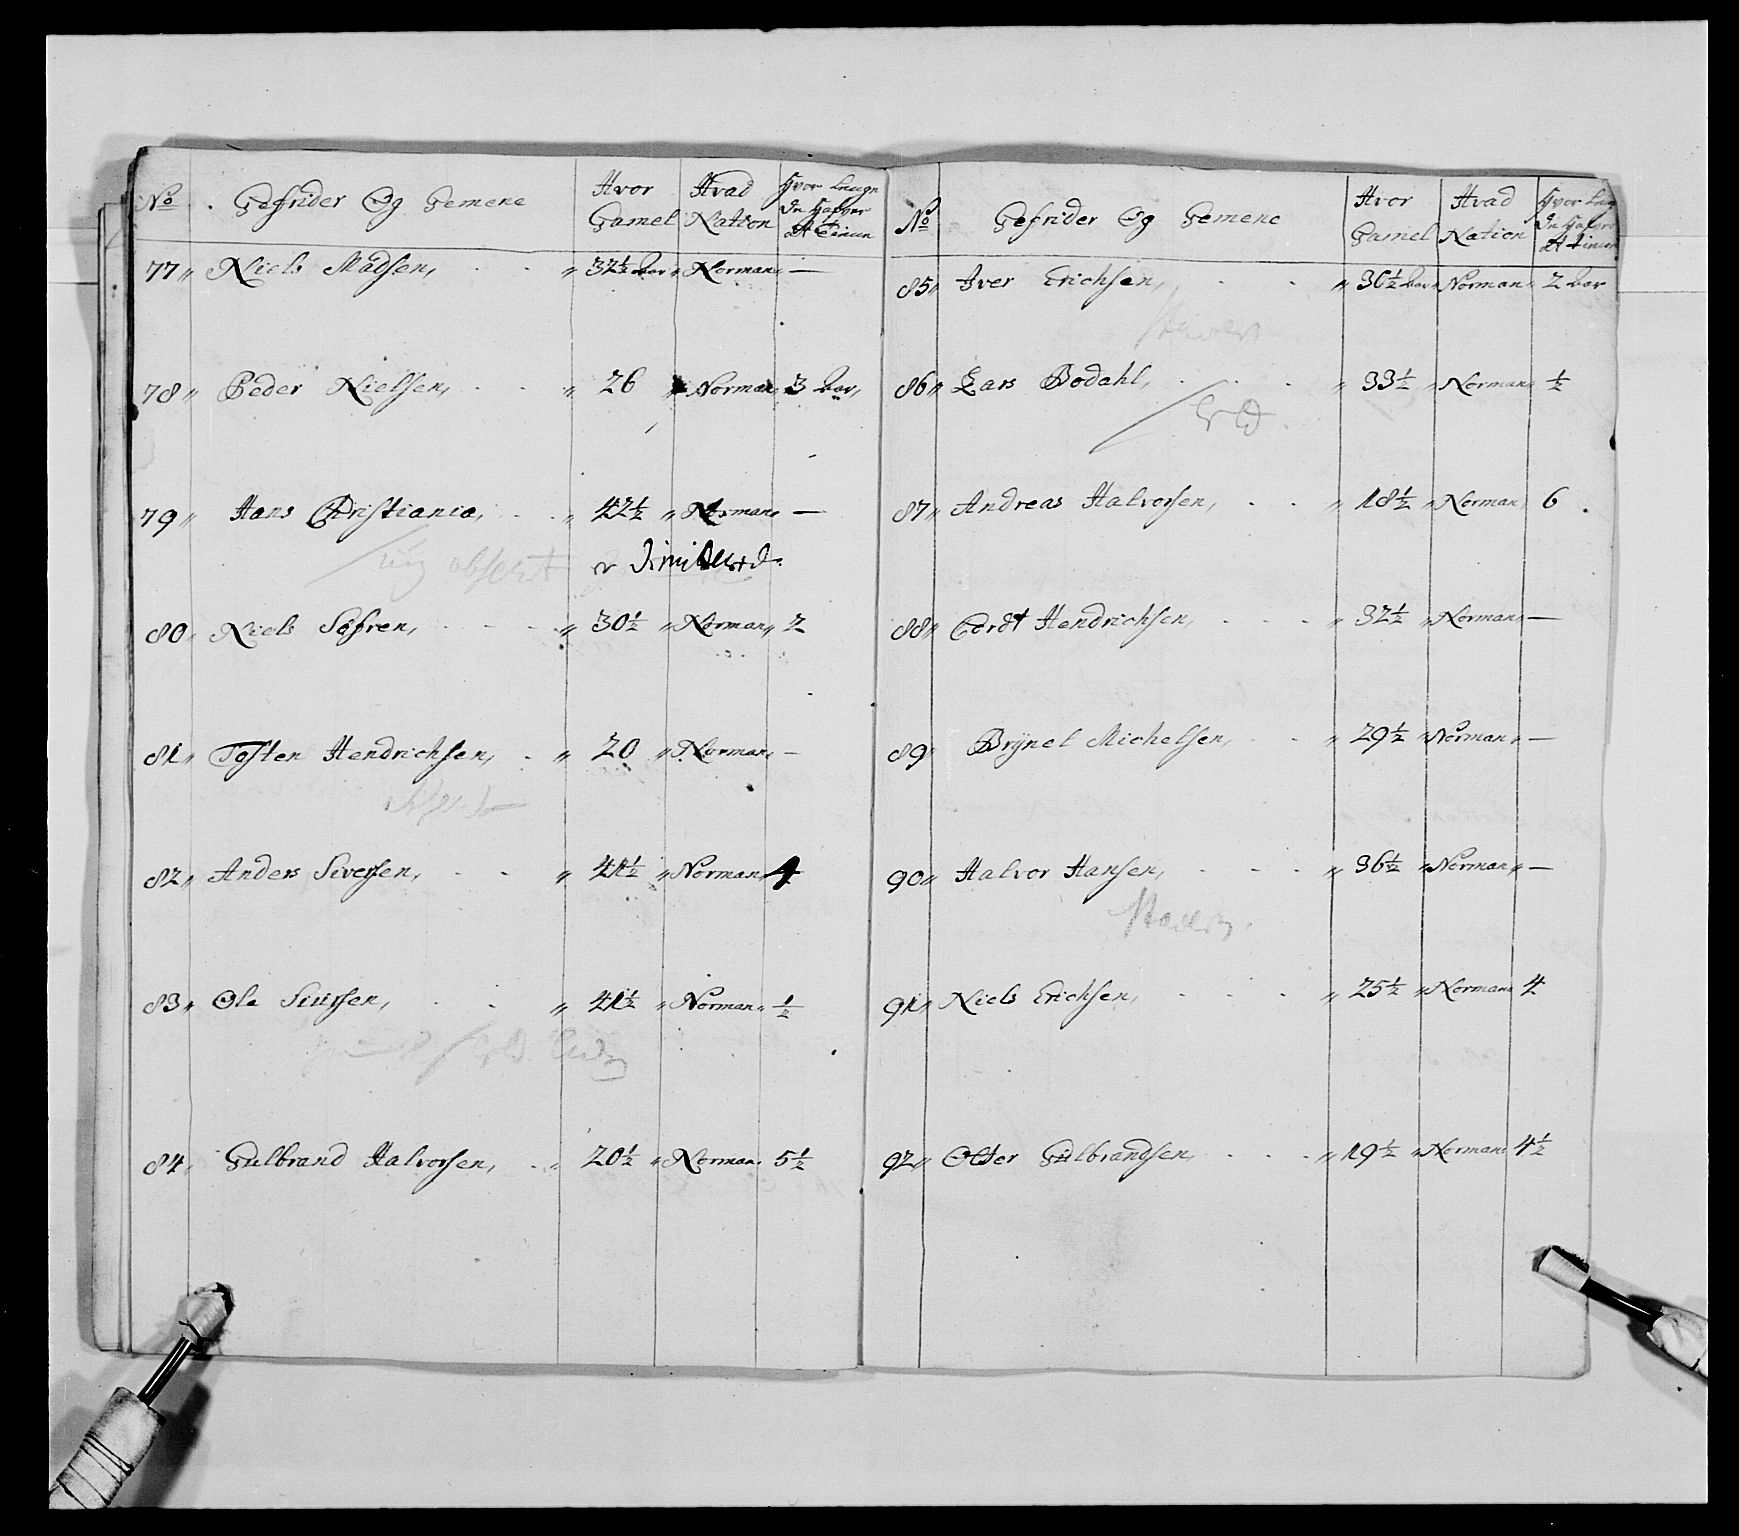 No. Gefrider Og Gemene Hvor Gamel Hvad Nation Hvor Længe
77 " Niels Madsen, " 32½ Aar " Norman " —
78 " Peder Nielsen, " 26 " Norman 3 Aar,
79 " Hans Christiania, " 42½ " Norman " —
absent er dimitterd.
80 " Niels Søfren, " 30½ " Norman " 2
81 " Tosten Hendrichsen, " 20 " Norman " —
82 " Anders Siversen, " 41½ " Norman " 4
83 " Ole Siursen, " 41½ " Norman " ½
84 " Gulbrand Halvorsen, " 20½ " Norman 5½
No. Gefrider Og Gemene Hvor Gamel Hvad Nation Hvor
85 " Iver Erichsen, " 30½ Aar " Norman " 2 Aar
86 " Lars Bodahl, " 33½ " Norman " ½
87 " Andreas Halvorsen, " 18½ " Norman 6
88 " Cordt Hendrichsen, " 32½ " Norman " —
89 " Brÿnel Michelsen, " 29½ " Norman " —
90 " Halvor Hansen, " 36½ " Norman " —
91 " Niels Erichsen, " 25½ " Norman 4
92 " Otter Gulbrandsen, " 19½ " Norman 4½